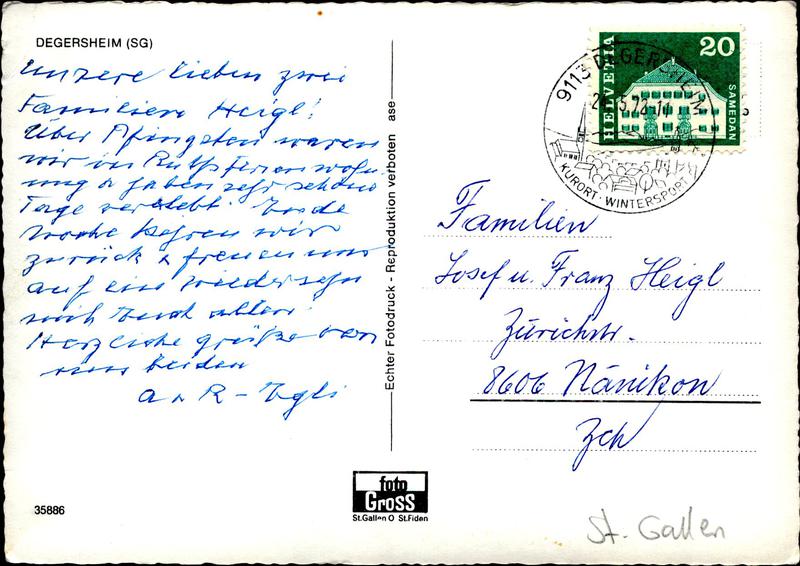 DEGERSHEIM (SG)
Unsere lieben zwei
Familien Heigl!
Über Pfingsten waren
wir in Ferienwohn
ung & haben sehr schöne
Tage verlebt. Ende
Woche kehren wir
zurück & freuen uns
auf ein Wiedersehn
mit Euch allen.
Herzliche Grüße von
uns beiden
A & R - Egli
35886
Echter Fotodruck - Reproduktion verboten ase
foto
Gross
St.Gallen O St.Fiden
HELVETIA
20
SAMEDAN
9113 DEGERSHEIM
KURORT · WINTERSPORT
Familien
Josef u. Franz Heigl
Zürichstr.
8606 Nänikon
Zch
St. Gallen